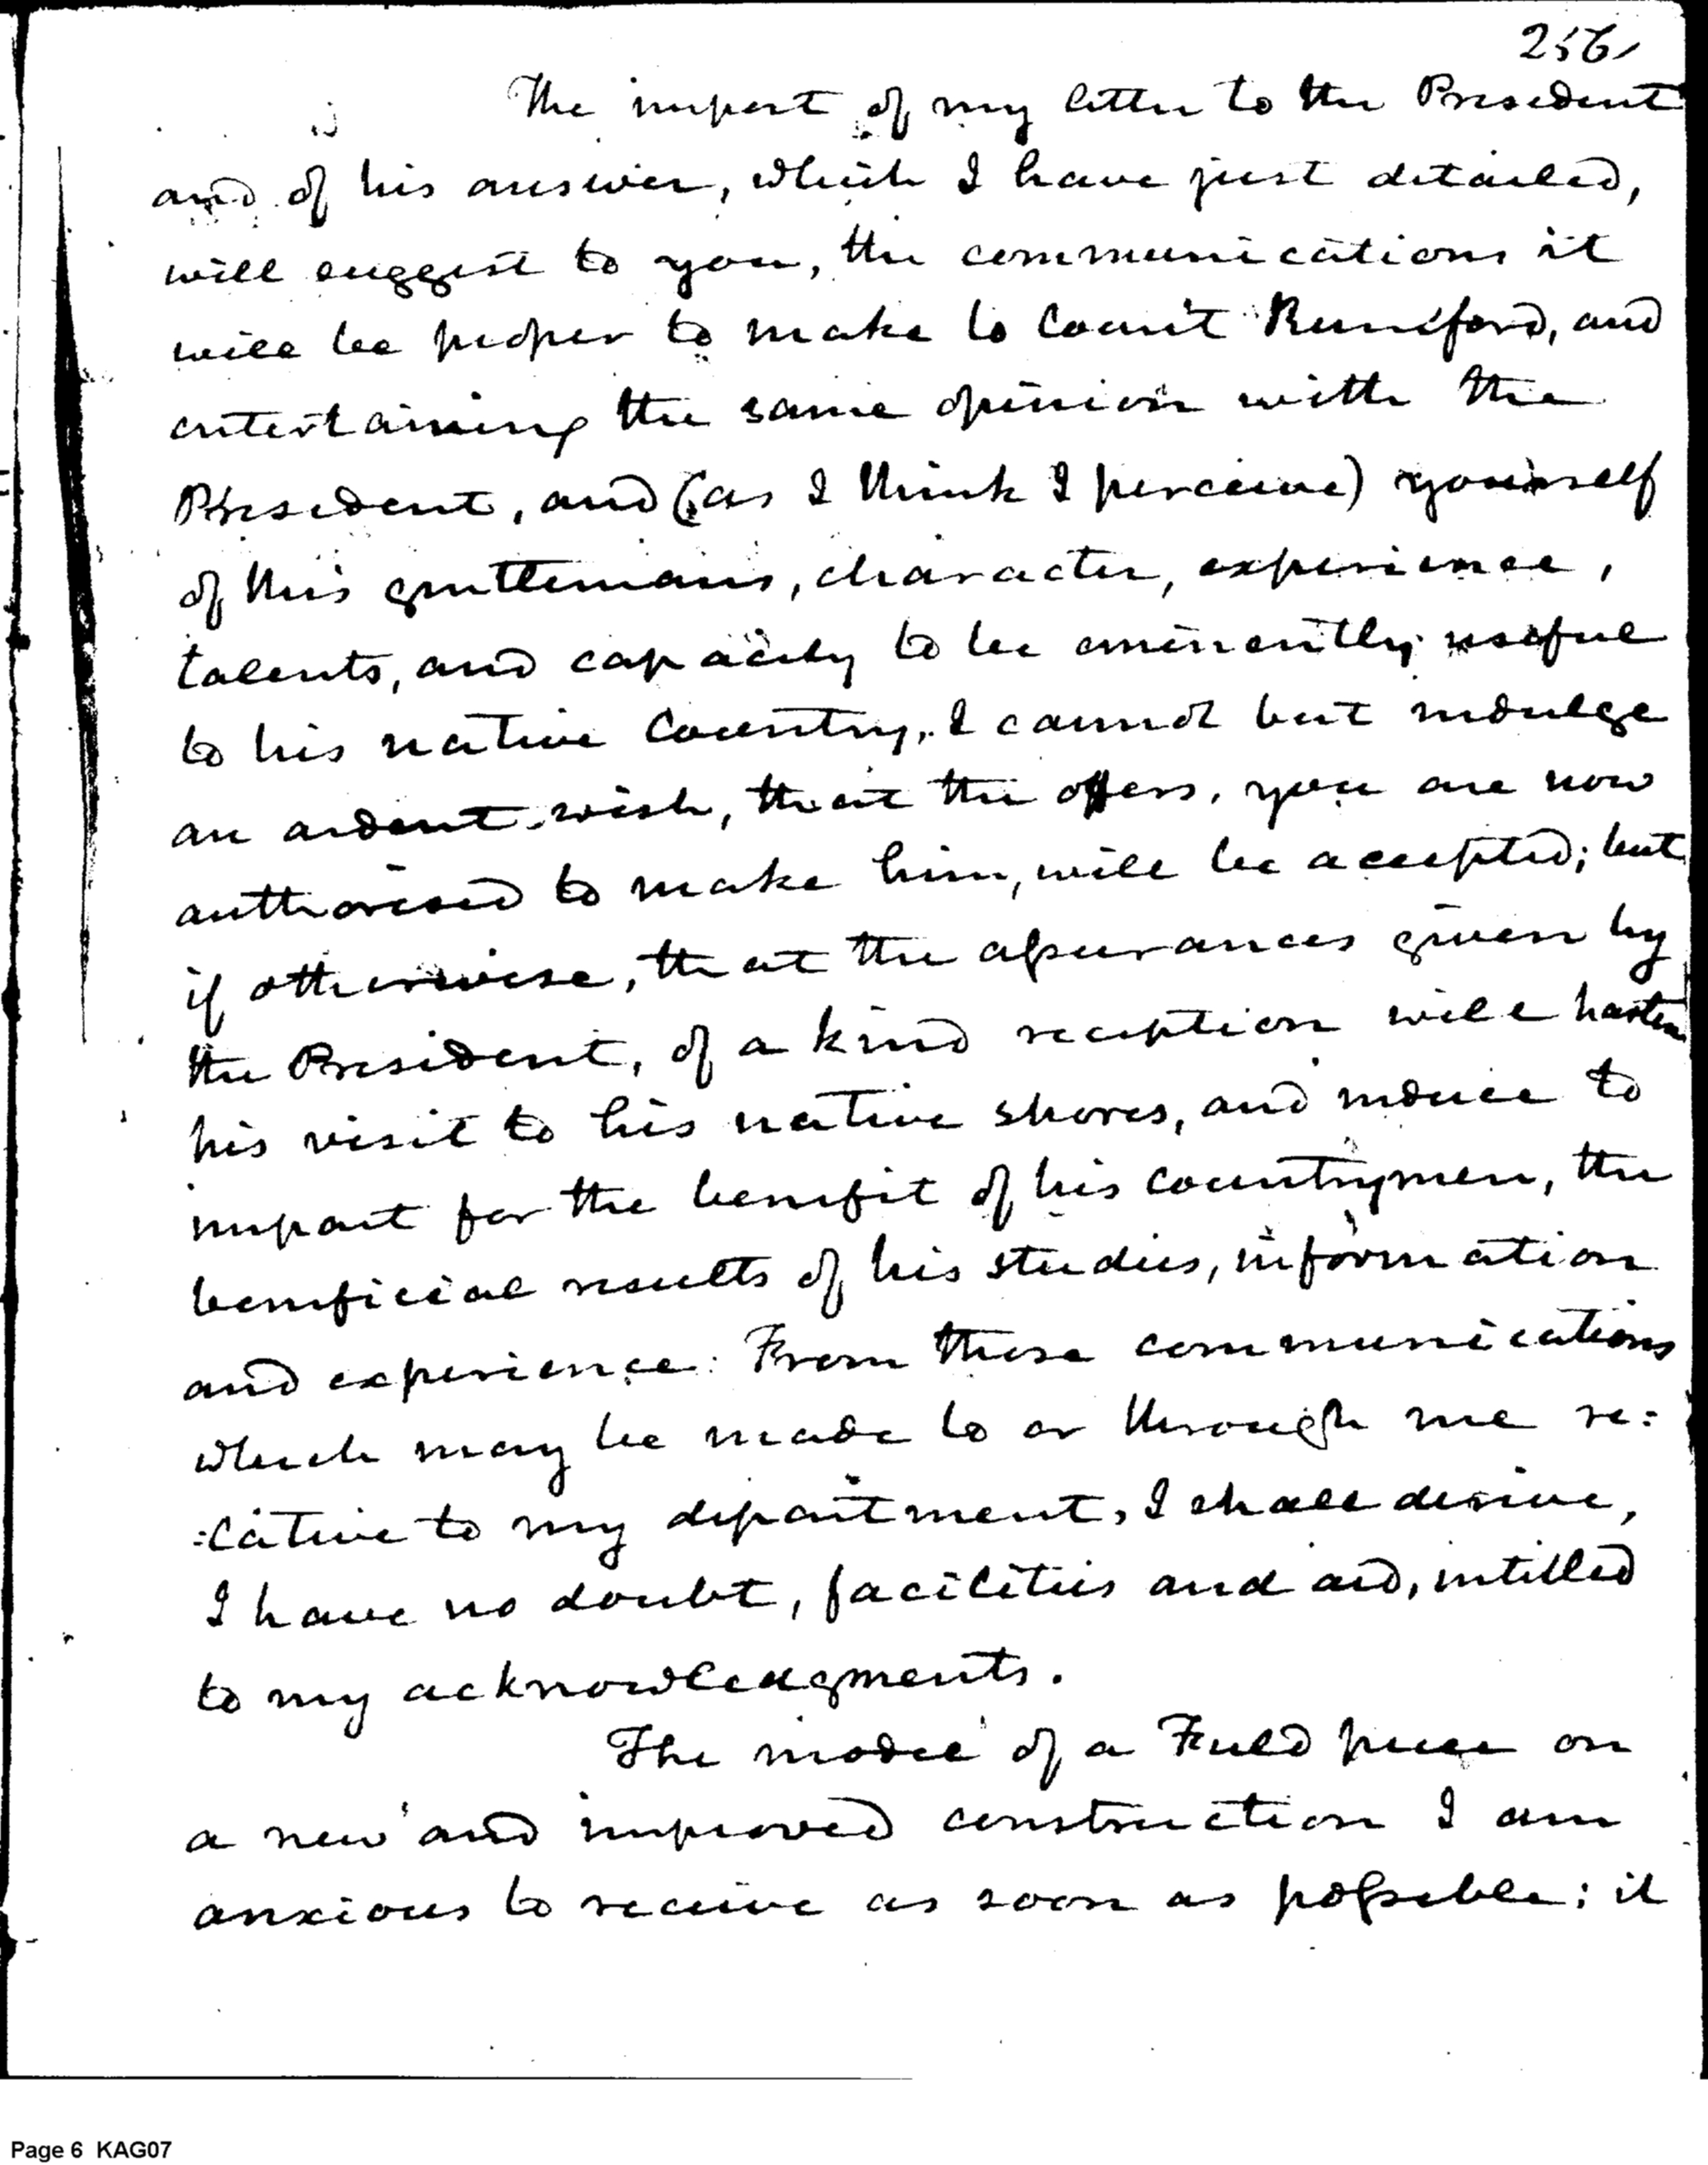 256
The import of my letter to the President
and of his answer, which I have just detailed,
will suggest to you, the communications it
will be proper to make to Count Rumford, and
entertaining the same opinion with the
President, and (as I think I perceive) yourself
of this gentlemans, character, experience,
talents, and capacity to be eminently useful
to his native Country, I cannot but indulge
an ardent wish, that the offers, you are now
authorised to make him, will be accepted; but
if otherwise, that the assurances given by
the President, of a kind reception will hasten
his visit to his native shores, and induce to
impart for the benefit of his countrymen, the
beneficial results of his studies, information
and experience. From those communications
which may be made to or through me re:
:lative to my department, I shall derive,
I have no doubt, facilities and aid, intitled
to my acknowledgments.
The model of a Field piece on
a new and improved construction I am
anxious to receive as soon as possible; it
Page 6 KAG07